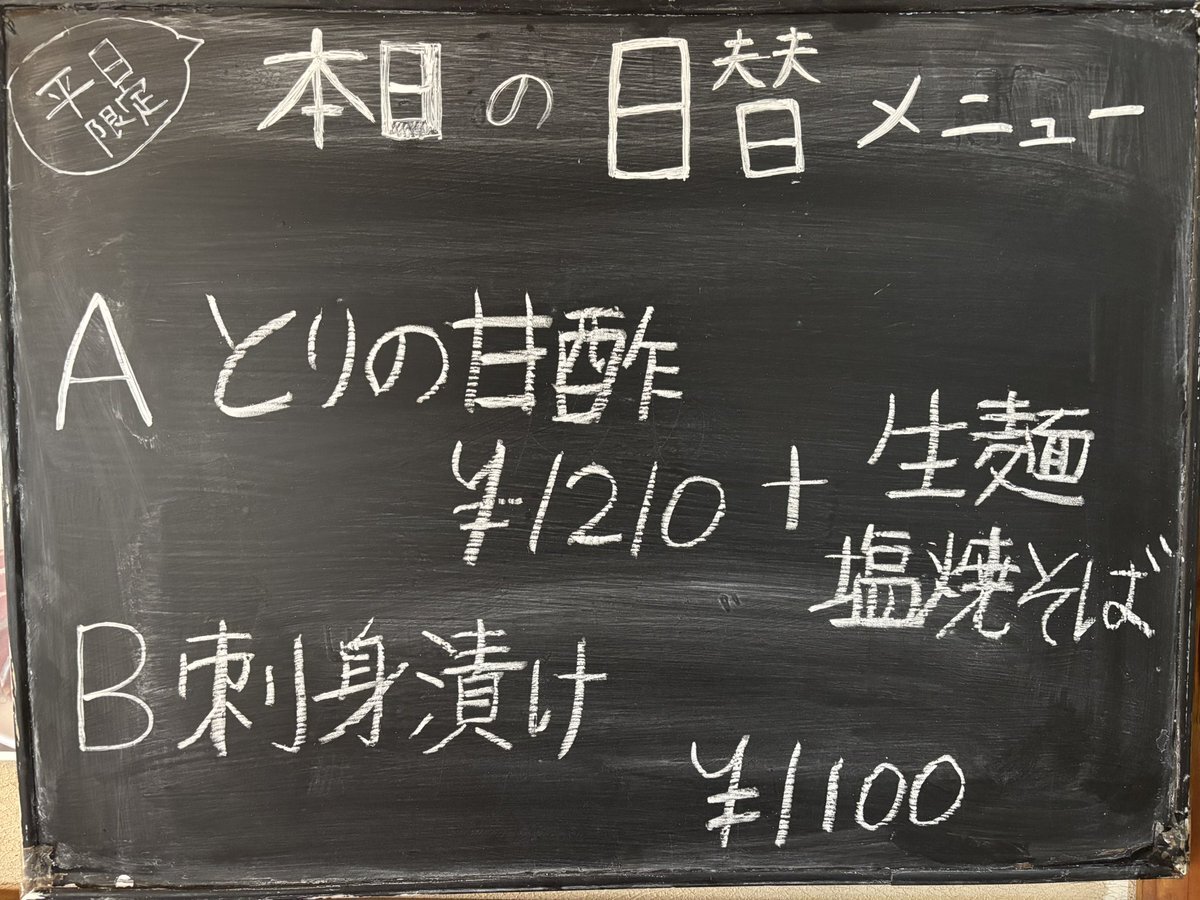 平日
限定
本日の日替メニュー
A とりの甘酢
¥1210 + 生麺
塩焼そば
B 刺身漬け
¥1100